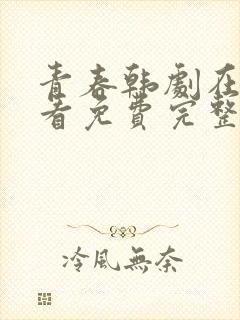 青春韩劇在
看免費完整
冷風無奈